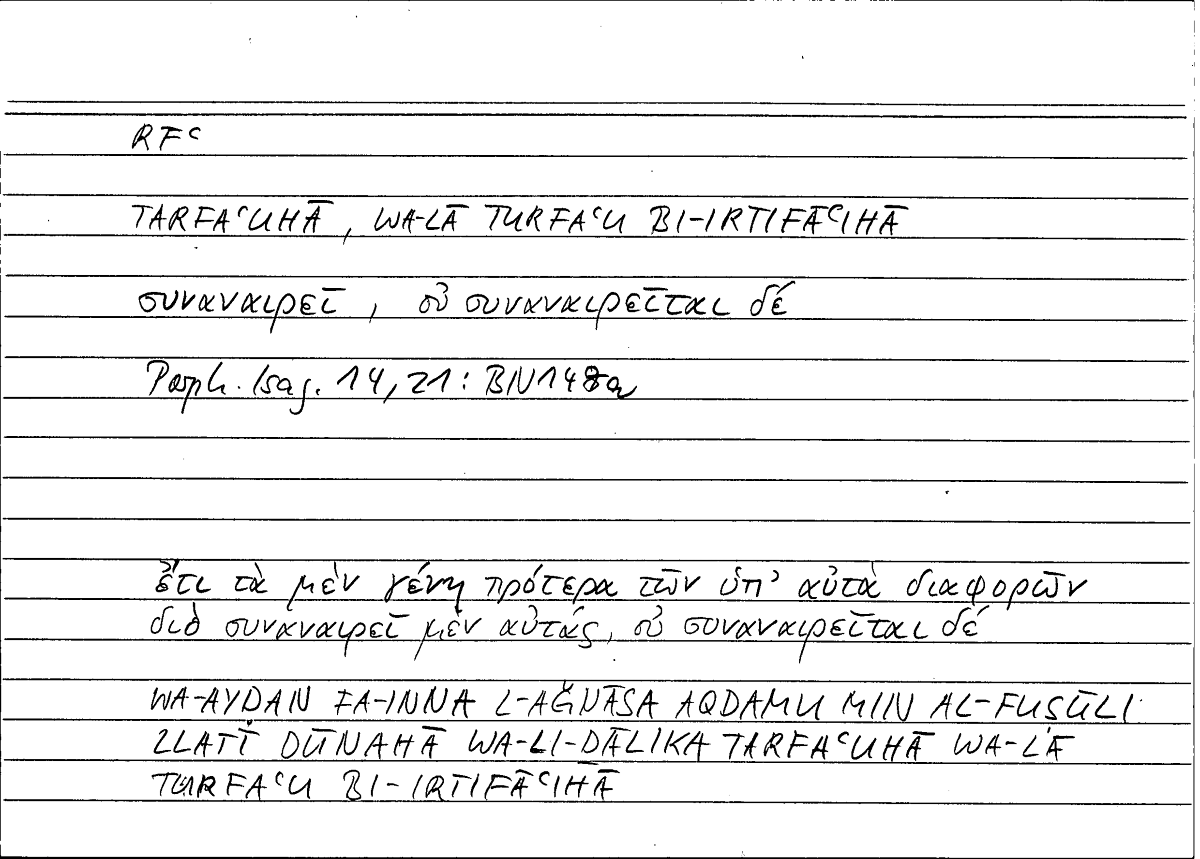 RFᶜ
TARFAᶜUHĀ, WA-LĀ TURFAᶜU BI-IRTIFĀᶜIHĀ
συναναιρεῖ, οὐ συναναιρεῖται δέ
Porph. Isag. 14,21: BN148a
ἔτι τὰ μὲν γένη πρότερα τῶν ὑπ' αὐτὰ διαφορῶν
διὸ συναναιρεῖ μὲν αὐτάς, οὐ συναναιρεῖται δέ
WA-AYDAN FA-INNA L-AǦNĀSA AQDAMU MIN AL-FUṢŪLI
LLATĪ DŪNAHĀ WA-LI-DĀLIKA TARFAᶜUHĀ WA-LĀ
TURFAᶜU BI-IRTIFĀᶜIHĀ